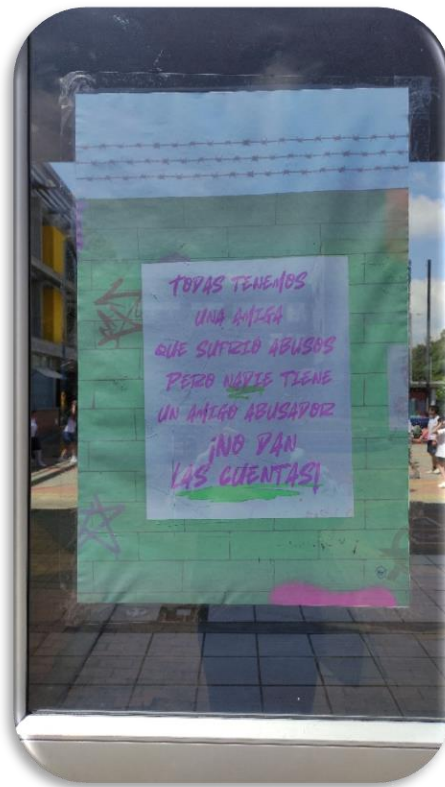 TODAS TENEMOS
UNA AMIGA
QUE SUFRIO ABUSOS
PERO NADIE TIENE
UN AMIGO ABUSADOR
¡NO DAN
LAS CUENTAS!